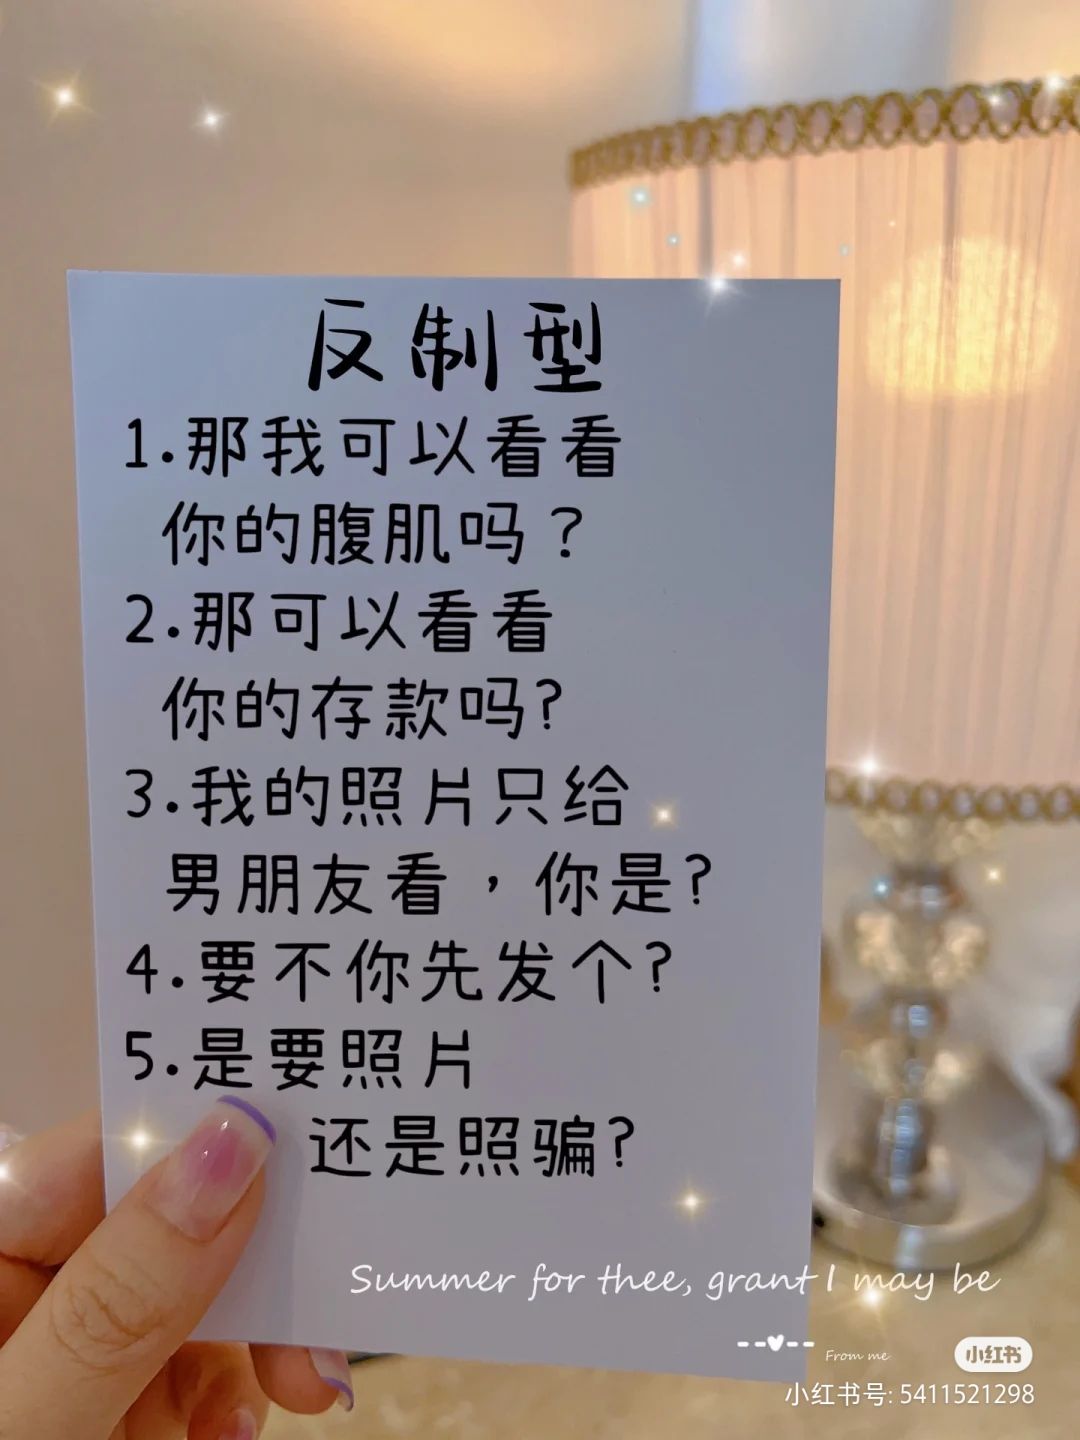 反制型
1.那我可以看看
你的腹肌吗？
2.那可以看看
你的存款吗?
3.我的照片只给
男朋友看，你是?
4.要不你先发个?
5.是要照片
还是照骗?
Summer for thee, grant I may be
From me
小红书
小红书号: 5411521298